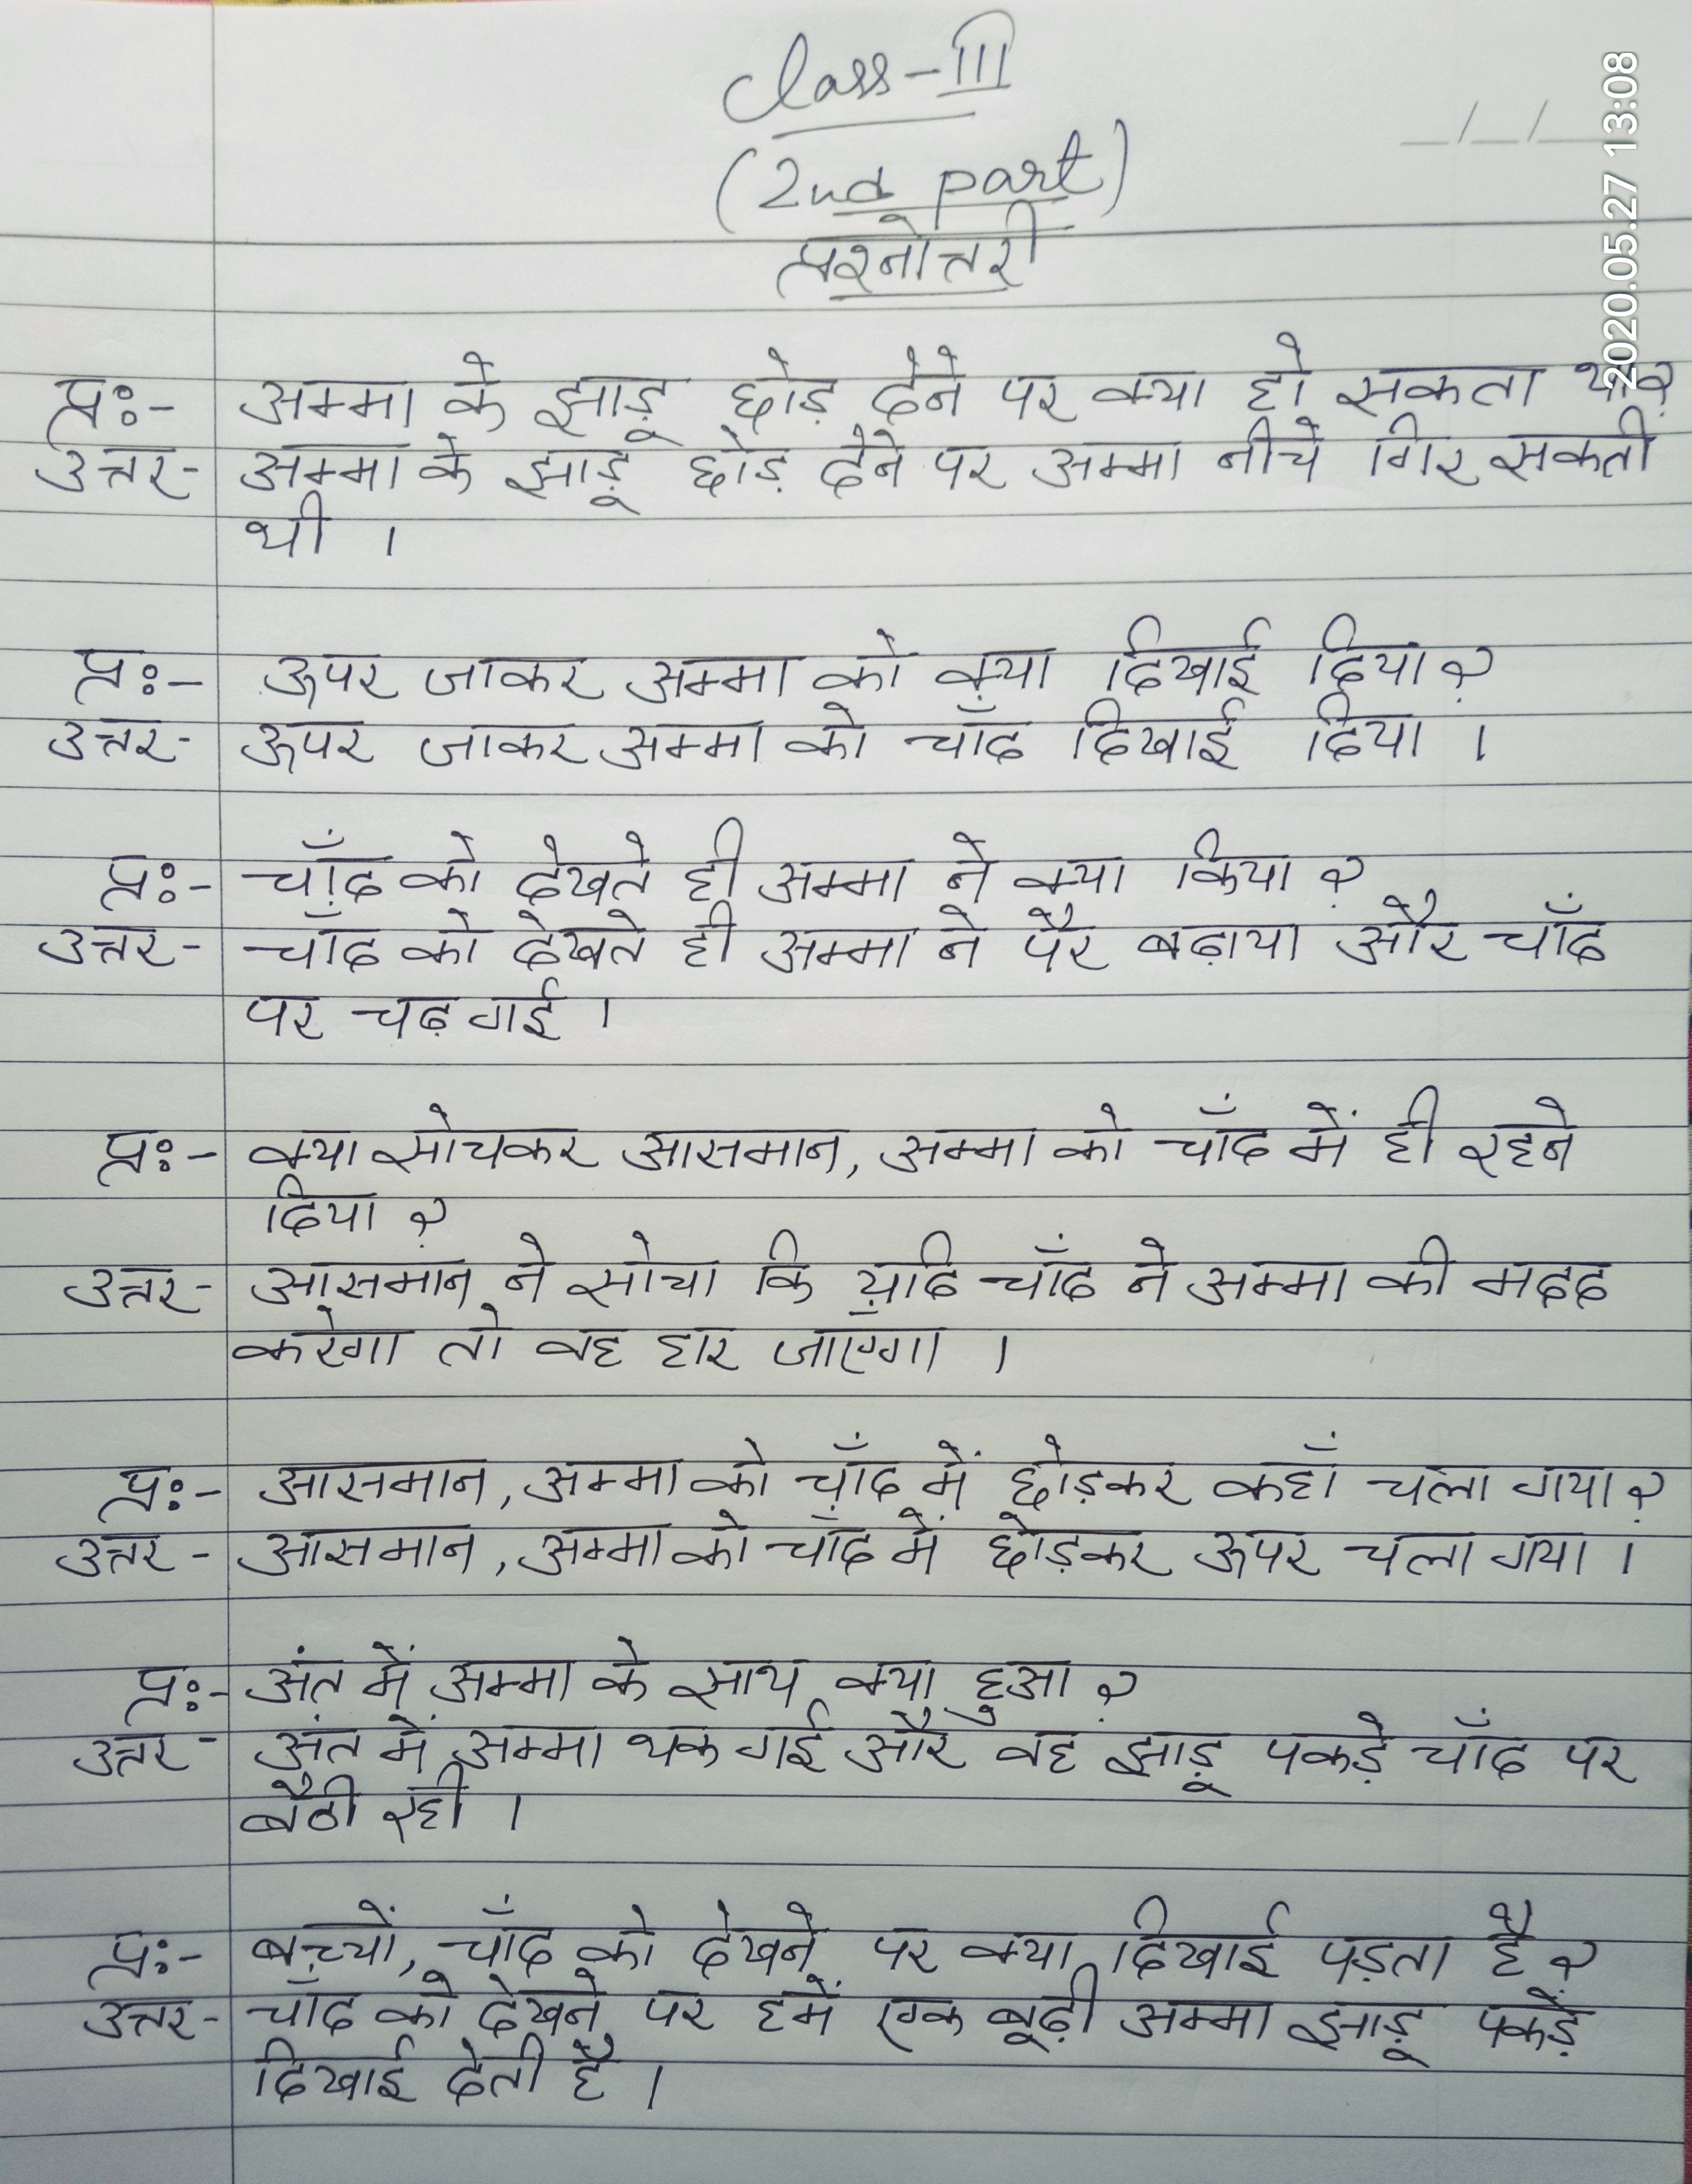 Class-III
(2nd part)
प्रश्नोत्तरी
2020.05.27 13:08
प्रः- अम्मा के झाड़ू छोड़ देने पर क्या हो सकता था?
उत्तर- अम्मा के झाड़ू छोड़ देने पर अम्मा नीचे गिर सकती
थी ।
प्रः- ऊपर जाकर अम्मा को क्या दिखाई दिया?
उत्तर- ऊपर जाकर अम्मा को चाँद दिखाई दिया ।
प्रः- चाँद को देखते ही अम्मा ने क्या किया ?
उत्तर- चाँद को देखते ही अम्मा ने पैर बढ़ाया और चाँद
पर चढ़ गई ।
प्रः- क्या सोचकर आसमान, अम्मा को चाँद में ही रहने
दिया ?
उत्तर- आसमान ने सोचा कि यदि चाँद ने अम्मा की मदद
करेगा तो वह हार जाएगा ।
प्रः- आसमान, अम्मा को चाँद में छोड़कर कहाँ चला गया?
उत्तर- आसमान, अम्मा को चाँद में छोड़कर ऊपर चला गया ।
प्रः- अंत में अम्मा के साथ क्या हुआ ?
उत्तर- अंत में अम्मा थक गई और वह झाड़ू पकड़े चाँद पर
बैठी रही ।
प्रः- बच्चों, चाँद को देखने पर क्या दिखाई पड़ता है ?
उत्तर- चाँद को देखने पर हमें एक बूढ़ी अम्मा झाड़ू पकड़े
दिखाई देती है ।